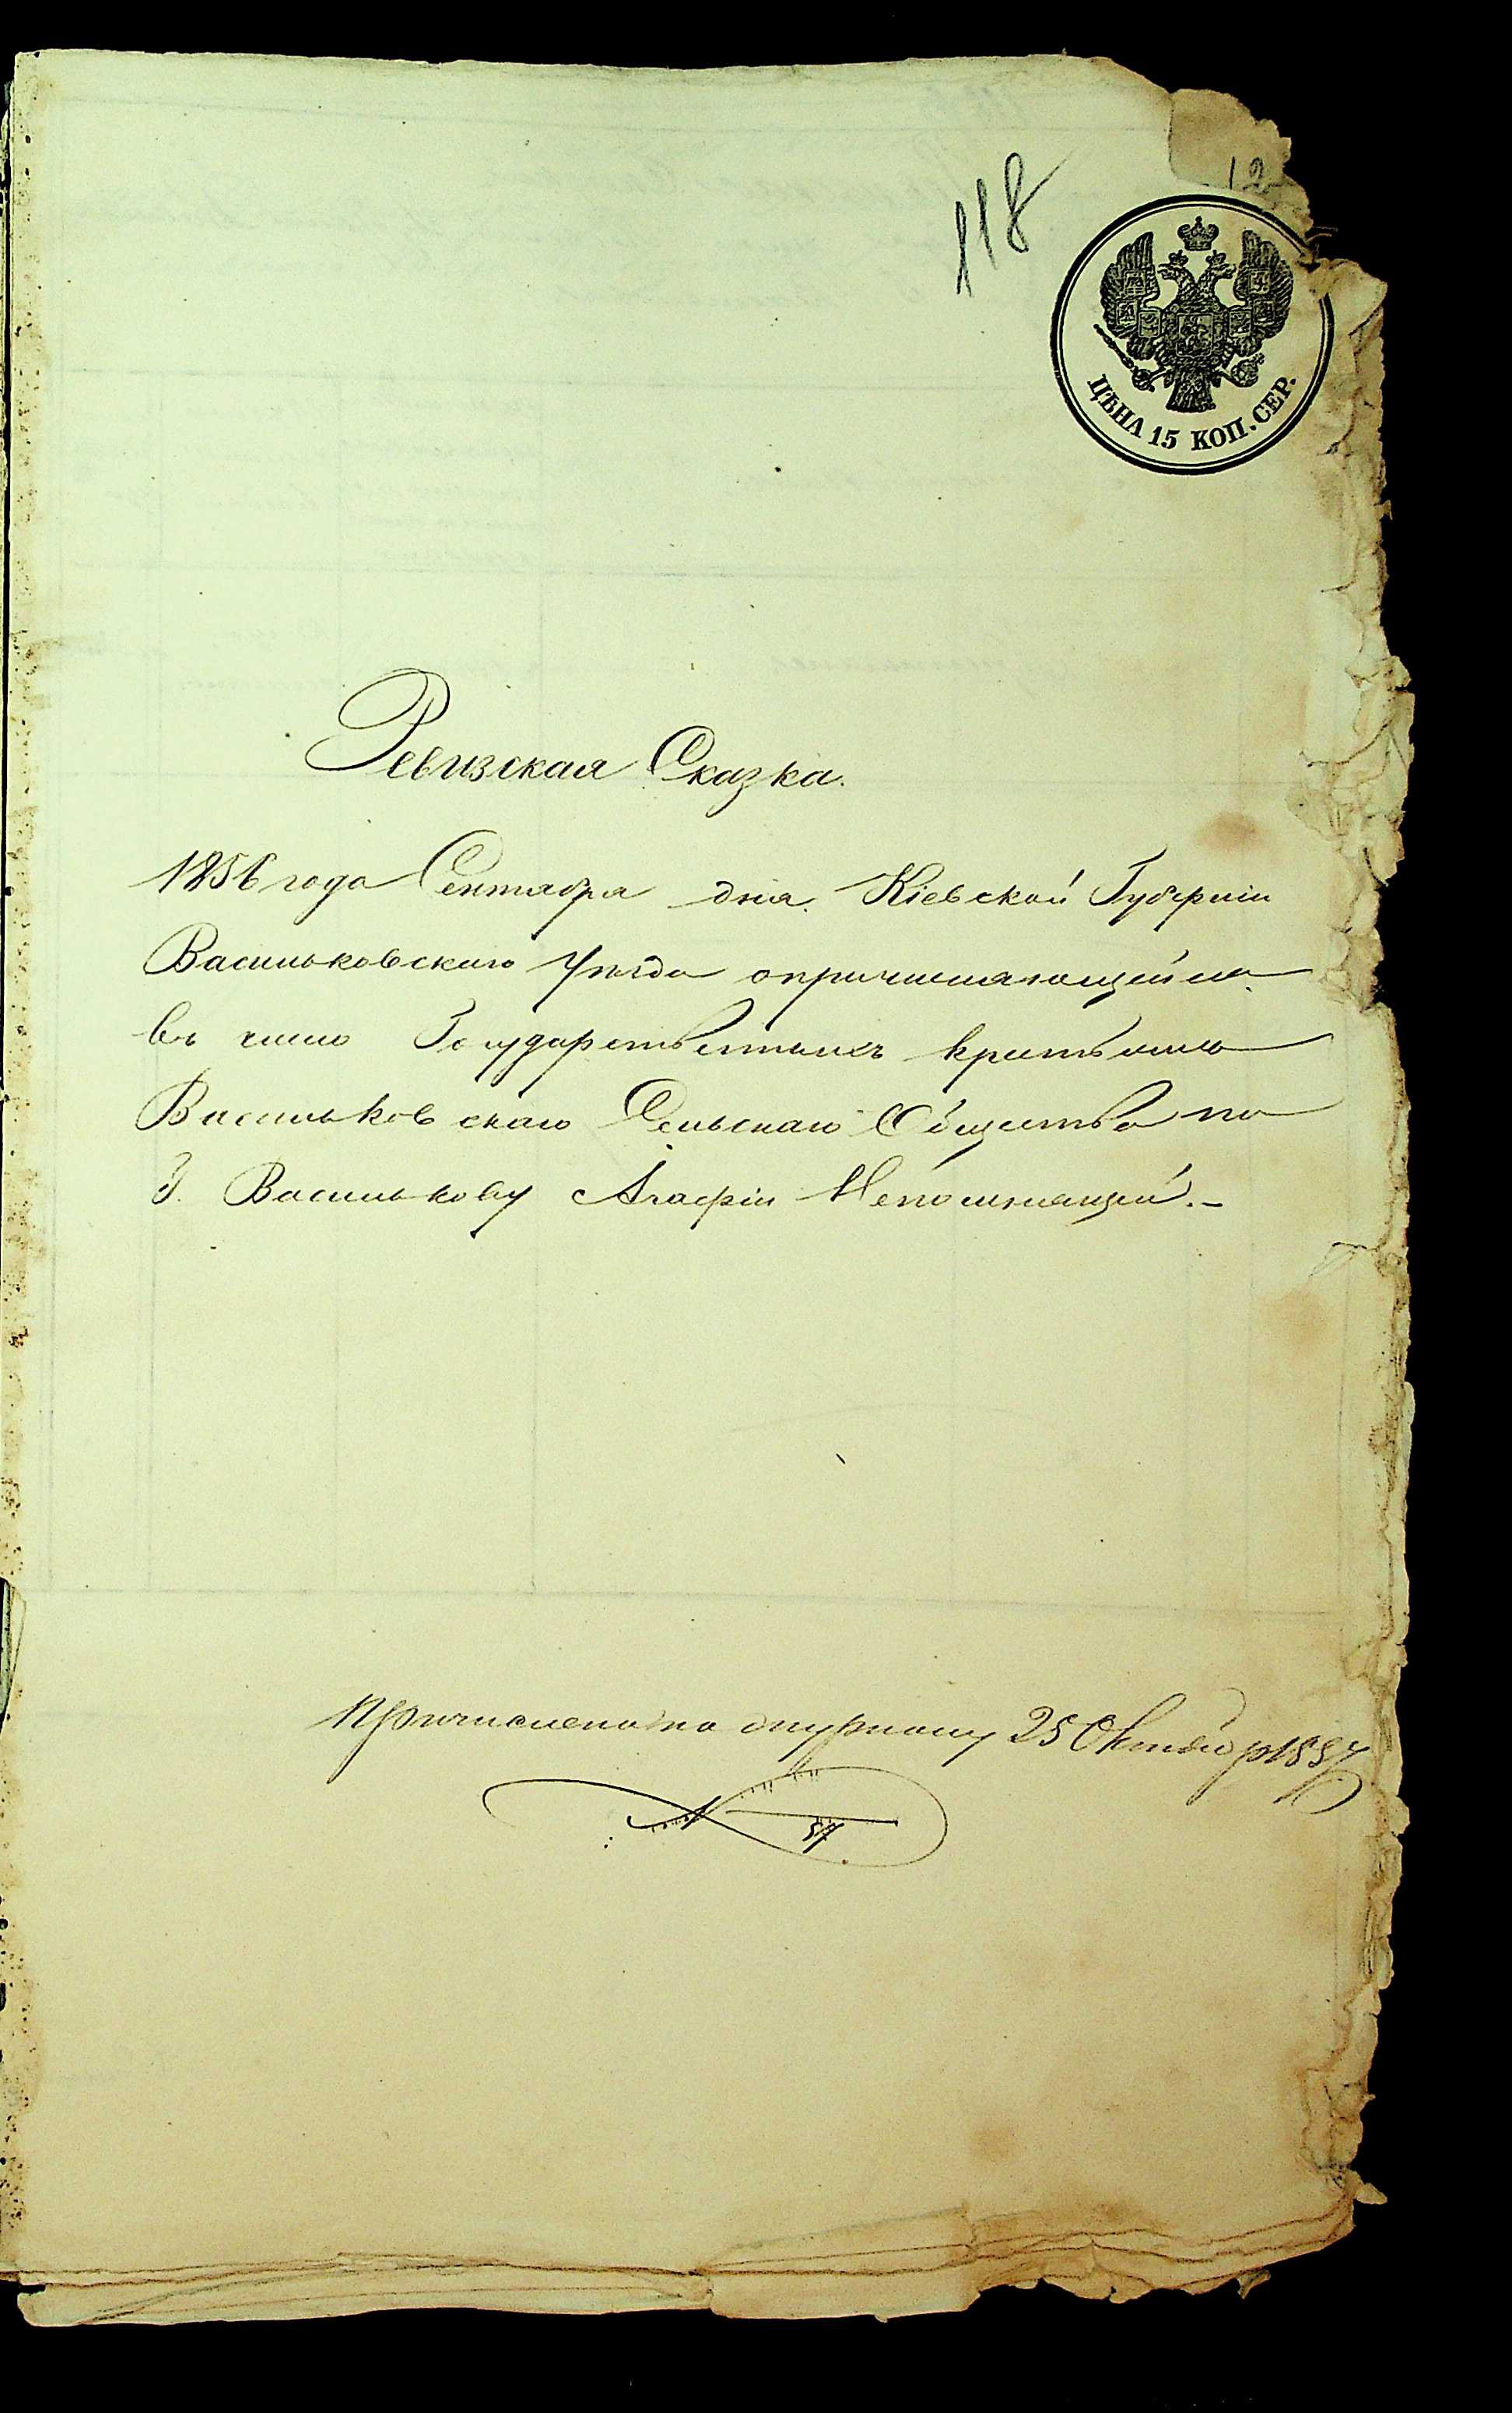 118
12
ЦѢНА 15 КОП. СЕР.
Ревизская Сказка.
1856 года Сентября дня. Кіевской Губерніи
Васильковскаго Уѣзда опричисляющейся
въ число Государственныхъ крестьянъ
Васильковскаго Сельскаго Общества по
Г. Василькову Агафіи Непомнящей.-
Причислена по журналу 25 Октября 1857
57